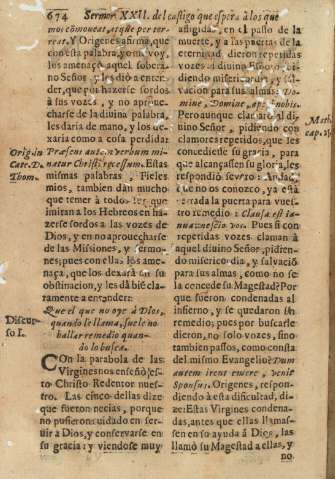 674 Sermon XXII. del castigo que espira à los que
mos commoueat, atque perter-
reat. Y Origenes afirma, que
con esta palabra, yo me voy,
les amenaçò aquel soberano
Señor, y les diò à enten-
der, que por hazerse sordos
à sus vozes, y no aproue-
charse de la diuina palabra,
les daria de mano, y los de-
xaria como à cosa perdida:
Præsens autem verbum mi-
natur Christi recessum. Estas
mismas palabras, Fieles
mios, tambien dàn mucho
que temer à todos los que
imitan à los Hebreos en ha-
zerse sordos à las vozes de
Dios, y en no aprouecharse
de las Missiones, y sermo-
nes; pues con ellas los ame-
naça, que los dexarà en su
obstinacion, y les dà biẽ cla-
ramente a entender:
Que el que no oye à Dios,
quando le llama, suele no
hallar remedio quan-
do lo busca.
CON la parabola de las
Virgines nos enseñò Jes-
u Christo Redentor nues-
tro. Las cinco dellas dize
que fueron necias, porque
no pusieron cuidado en ser-
uir à Dios, y conseruarse en
su gracia: y viendose muy
Origin.
Cate. D.
Thom.
Discur-
so I.
afligidas, en el passo de la
muerte, y a las puertas de la
eternidad dieron repetidas
vozes al diuino Esposo, pi-
diendo misericordia, y sal-
uacion para sus almas: Do-
mine, Domine, aperi nobis.
Pero aunque clamaron al di-
uino Señor, pidiendo con
clamores repetidos, que les
concediesse su gracia, para
que alcançassen su gloria, les
respondiò seuero: Andad,
que no os conozco, ya està
cerrada la puerta para vues-
tro remedio: Clausa est ia-
nua, nescio vos. Pues si con
repetidas vozes claman à
aquel diuino Señor, pidien-
do misericordia, y saluaciò
para sus almas, como no se
la concede su Magestad? Por
que fueron condenadas al
infierno, y se quedaron sin
remedio; pues por buscarle
dieron, no solo vozes, sino
tambien passos, como consta
del mismo Euangelio? Dum
autem irent emere, venit
Sponsus. Origenes, respon-
diendo à esta dificultad, di-
ze: Estas Virgines condena-
das, antes que ellas llamas-
sen en su ayuda à Dios, las
llamò su Magestad a ellas, y
no
Math.